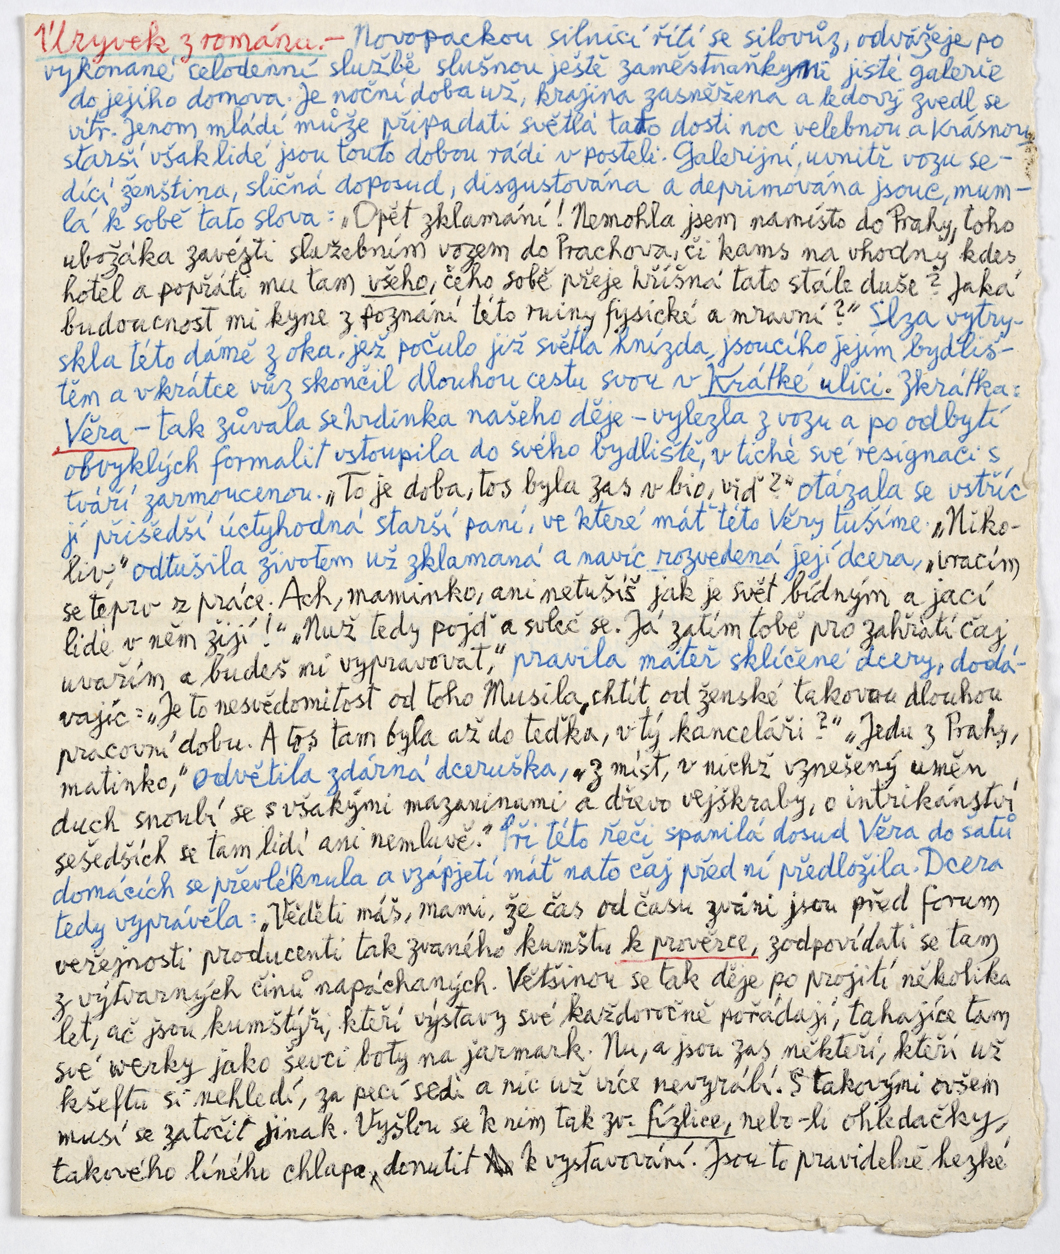 Úryvek z románu.- Novopackou silnicí řítí se silovůz, odvážeje po
vykonané celodenní službě slušnou ještě zaměstnankyni jisté galerie
do jejího domova. Je noční doba už, krajina zasněžena a ledový zvedl se
vítr. Jenom mládí může připadati světlá tato dosti noc velebnou a krásnou,
starší však lidé jsou touto dobou rádi v posteli. Galerijní, uvnitř vozu se-
dící ženština, sličná doposud, disgustována a deprimována jsouc, mum-
lá k sobě tato slova: „Opět zklamání! Nemohla jsem namísto do Prahy, toho
ubožáka zavézti služebním vozem do Prachova, či kams na vhodný kdes
hotel a popřáti mu tam všeho, čeho sobě přeje hříšná tato stále duše? Jaká
budoucnost mi kyne z poznání této ruiny fysické a mravní?“ Slza vytry-
skla této dámě z oka, jež počulo již světla hnízda, jsoucího jejím bydliš-
těm a v krátce vůz skončil dlouhou cestu svou v Krátké ulici. Zkrátka:
Věra - tak zůvala se hrdinka našeho děje - vylezla z vozu a po odbytí
obvyklých formalit vstoupila do svého bydliště, v tiché své resignaci s
tváří zarmoucenou. „To je doba, tos byla zas v bio, viď?“ otázala se vstříc
jí přišedší úctyhodná starší paní, ve které máť této Věry tušíme. „Niko-
liv,“ odtušila životem už zklamaná a navíc rozvedená její dcera, „vracím
se teprv z práce. Ach, maminko, ani netušíš jak je svět bídným a jací
lidé v něm žijí!“ „Nuž tedy pojď a svleč se. Já zatím tobě pro zahřátí čaj
uvařím a budeš mi vypravovat,“ pravila mateř sklíčené dcery, dodá-
vajíc: „Je to nesvědomitost od toho Musila, chtít od ženské takovou dlouhou
pracovní dobu. A tos tam byla až do teďka, v tý kanceláři?“ „Jedu z Prahy,
matinko,“ odvětila zdárná dceruška, „z míst, v nichž vznešený uměn
duch snoubí se s všakými mazaninami a dřevo vejškraby, o intrikánství
sešedších se tam lidí ani nemluvě.“ Při této řeči spanilá dosud Věra do šatů
domácích se převléknula a vzápjetí máť nato čaj před ní předložila. Dcera
tedy vyprávěla: „Věděti máš, mami, že čas od času zváni jsou před forum
veřejnosti producenti tak zvaného kumštu k prověrce, zodpovídati se tam
z výtvarných činů napáchaných. Většinou se tak děje po projití několika
let, ač jsou kumštýři, kteří výstavy své každoročně pořádají, tahajíce tam
své werky jako ševci boty na jarmark. Nu, a jsou zas někteří, kteří už
kšeftu si nehledí, za pecí sedí a nic už více nevyrábí. S takovými ovšem
musí se zatočit jinak. Vyšlou se k nim tak zv. fízlice, nebo-li ohledačky,
takového líného chlapa, donutit k vystavování. Jsou to pravidelně hezké